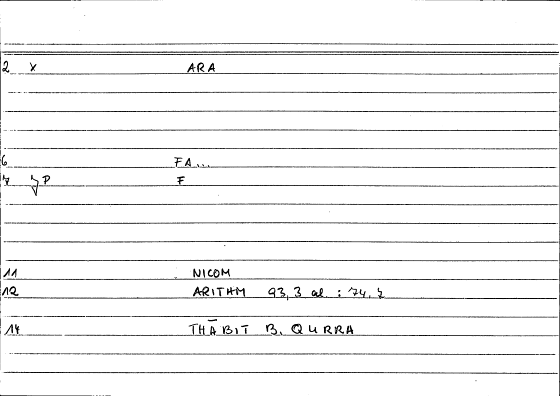 2 x ARA
6 FA...
7 P F
11 NICOM
12 ARITHM 93,3 al. : 74,7
14 THĀBIT B. QURRA